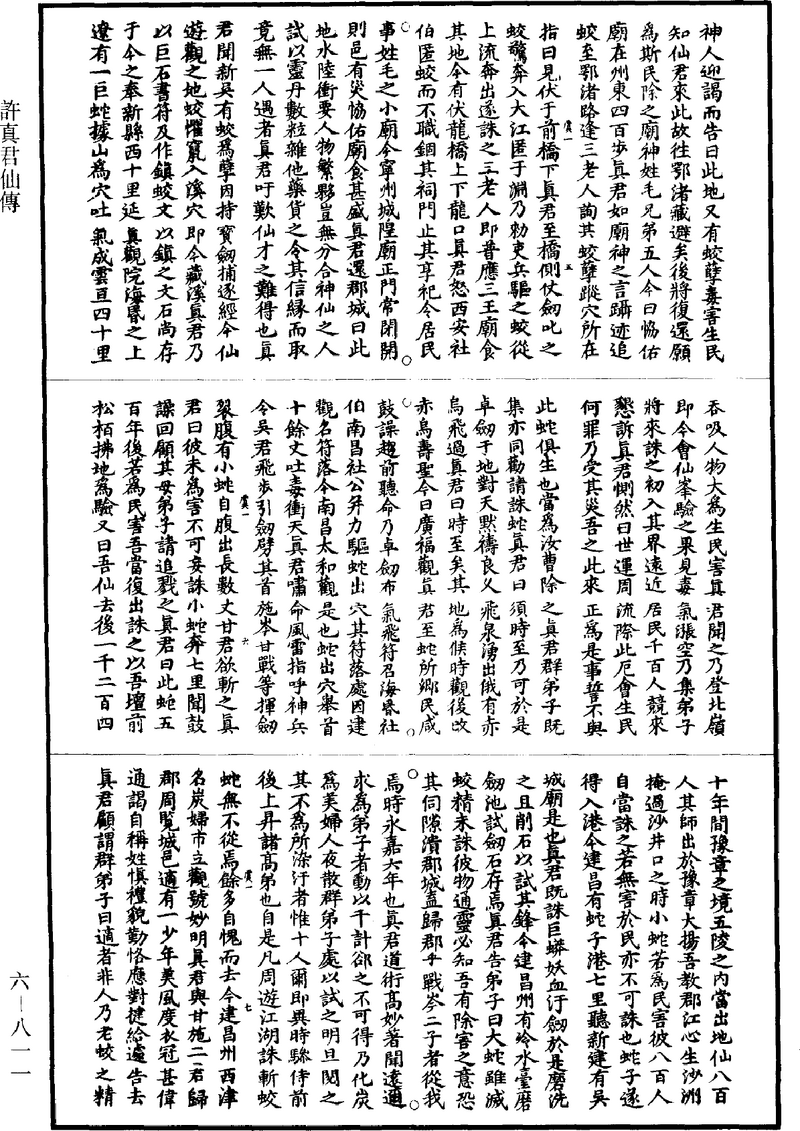 許真君仙傳
神人迎謁而告曰此地又有蛟孽毒害生民
知仙君來此故往鄂渚藏避矣後將復還願
爲斯民除之廟神姓毛兄弟五人今曰協佑
廟在州東四百步眞君如廟神之言躡迹追
蛟至鄂渚路逢三老人詢其蛟孽蹤穴所在
指曰見伏于前橋下眞君至橋側仗劒叱之
蛟驚奔入大江匿于淵乃勑吏兵驅之蛟從
上流奔出遂誅之三老人即普應三王廟食
其地今有伏龍橋上下龍口眞君怒西安社
伯匿蛟而不職錮其祠門止其享祀令居民
事姓毛之小廟今寧州城隍廟正門常閉開
則邑有災協佑廟食甚盛眞君還郡城曰此
地水陸衝要人物繁夥豈無分合神仙之人
試以靈丹數粒雜他藥貨之令其信緣而取
竟無一人遇者眞君吁歎仙才之難得也眞
君聞新吳有蛟爲孽因持寶劒捕逐經今仙
遊觀之地蛟懼竄入溪穴即今藏溪眞君乃
以巨石書符及作鎮蛟文以鎮之文石尚存
于今之奉新縣西十里延眞觀院海昬之上
遼有一巨蛇據山爲穴吐氣成雲亘四十里
吞吸人物大爲生民害眞君聞之乃登北嶺
即今會仙峯驗之果見毒氣漲空乃集弟子
將來誅之初入其界遠近居民千百人競來
懇訴眞君惻然曰世運周流際此厄會生民
何罪乃受其災吾之此來正爲是事誓不與
此蛇俱生也當爲汝曹除之眞君群弟子旣
集亦同勸請誅蛇眞君曰須時至乃可於是
卓劒于地對天默禱良乆飛泉湧出俄有赤
烏飛過眞君曰時至矣其地爲候時觀後改
赤烏壽聖今曰廣福觀眞君至蛇所鄉民咸
鼓譟趨前聽命乃卓劒布氣飛符召海昬社
伯南昌社公幷力驅蛇出穴其符落處因建
觀名符落今南昌太和觀是也蛇出穴舉首
十餘丈吐毒衝天眞君嘯命風雷指呼神兵
令吳君飛步引劒劈其首施岑甘戰等揮劒
裂腹有小蛇自腹出長數丈甘君欲斬之眞
君曰彼未爲害不可妄誅小蛇奔七里聞鼓
譟回顧其母弟子請追戮之眞君曰此蛇五
百年後若爲民害吾當復出誅之以吾壇前
松栢拂地爲驗又曰吾仙去後一千二百四
十年間豫章之境五陵之內當出地仙八百
人其師出於豫章大揚吾教郡江心生沙洲
掩過沙井口之時小蛇若爲民害彼八百人
自當誅之若無害於民亦不可誅也蛇子遂
得入港今建昌有蛇子港七里聽新建有吳
城廟是也眞君旣誅巨蟒妖血汙劒於是磨洗
之且削石以試其鋒今建昌州有冷水臺磨
劒池試劒石存焉眞君告弟子曰大蛇雖滅
蛟精未誅彼物通靈必知吾有除害之意恐
其伺隙潰郡城盍歸郡乎戰岑二子者從我
焉時永嘉六年也眞君道術高妙著聞遠邇
求爲弟子者動以千計卻之不可得乃化炭
爲美婦人夜散群弟子處以試之明旦閱之
其不爲所染汙者惟十人爾即異時驂侍前
後上昇諸高弟也自是凡周遊江湖誅斬蛟
蛇無不從焉餘多自愧而去今建昌州西津
名炭婦市立觀號妙明眞君與甘施二君歸
郡周覽城邑適有一少年美風度衣冠甚偉
通謁自稱姓愼禮貌勤恪應對捷給遽告去
眞君顧謂群弟子曰適者非人乃老蛟之精
虞一
五
虞一
六
虞一
七
六—八一一